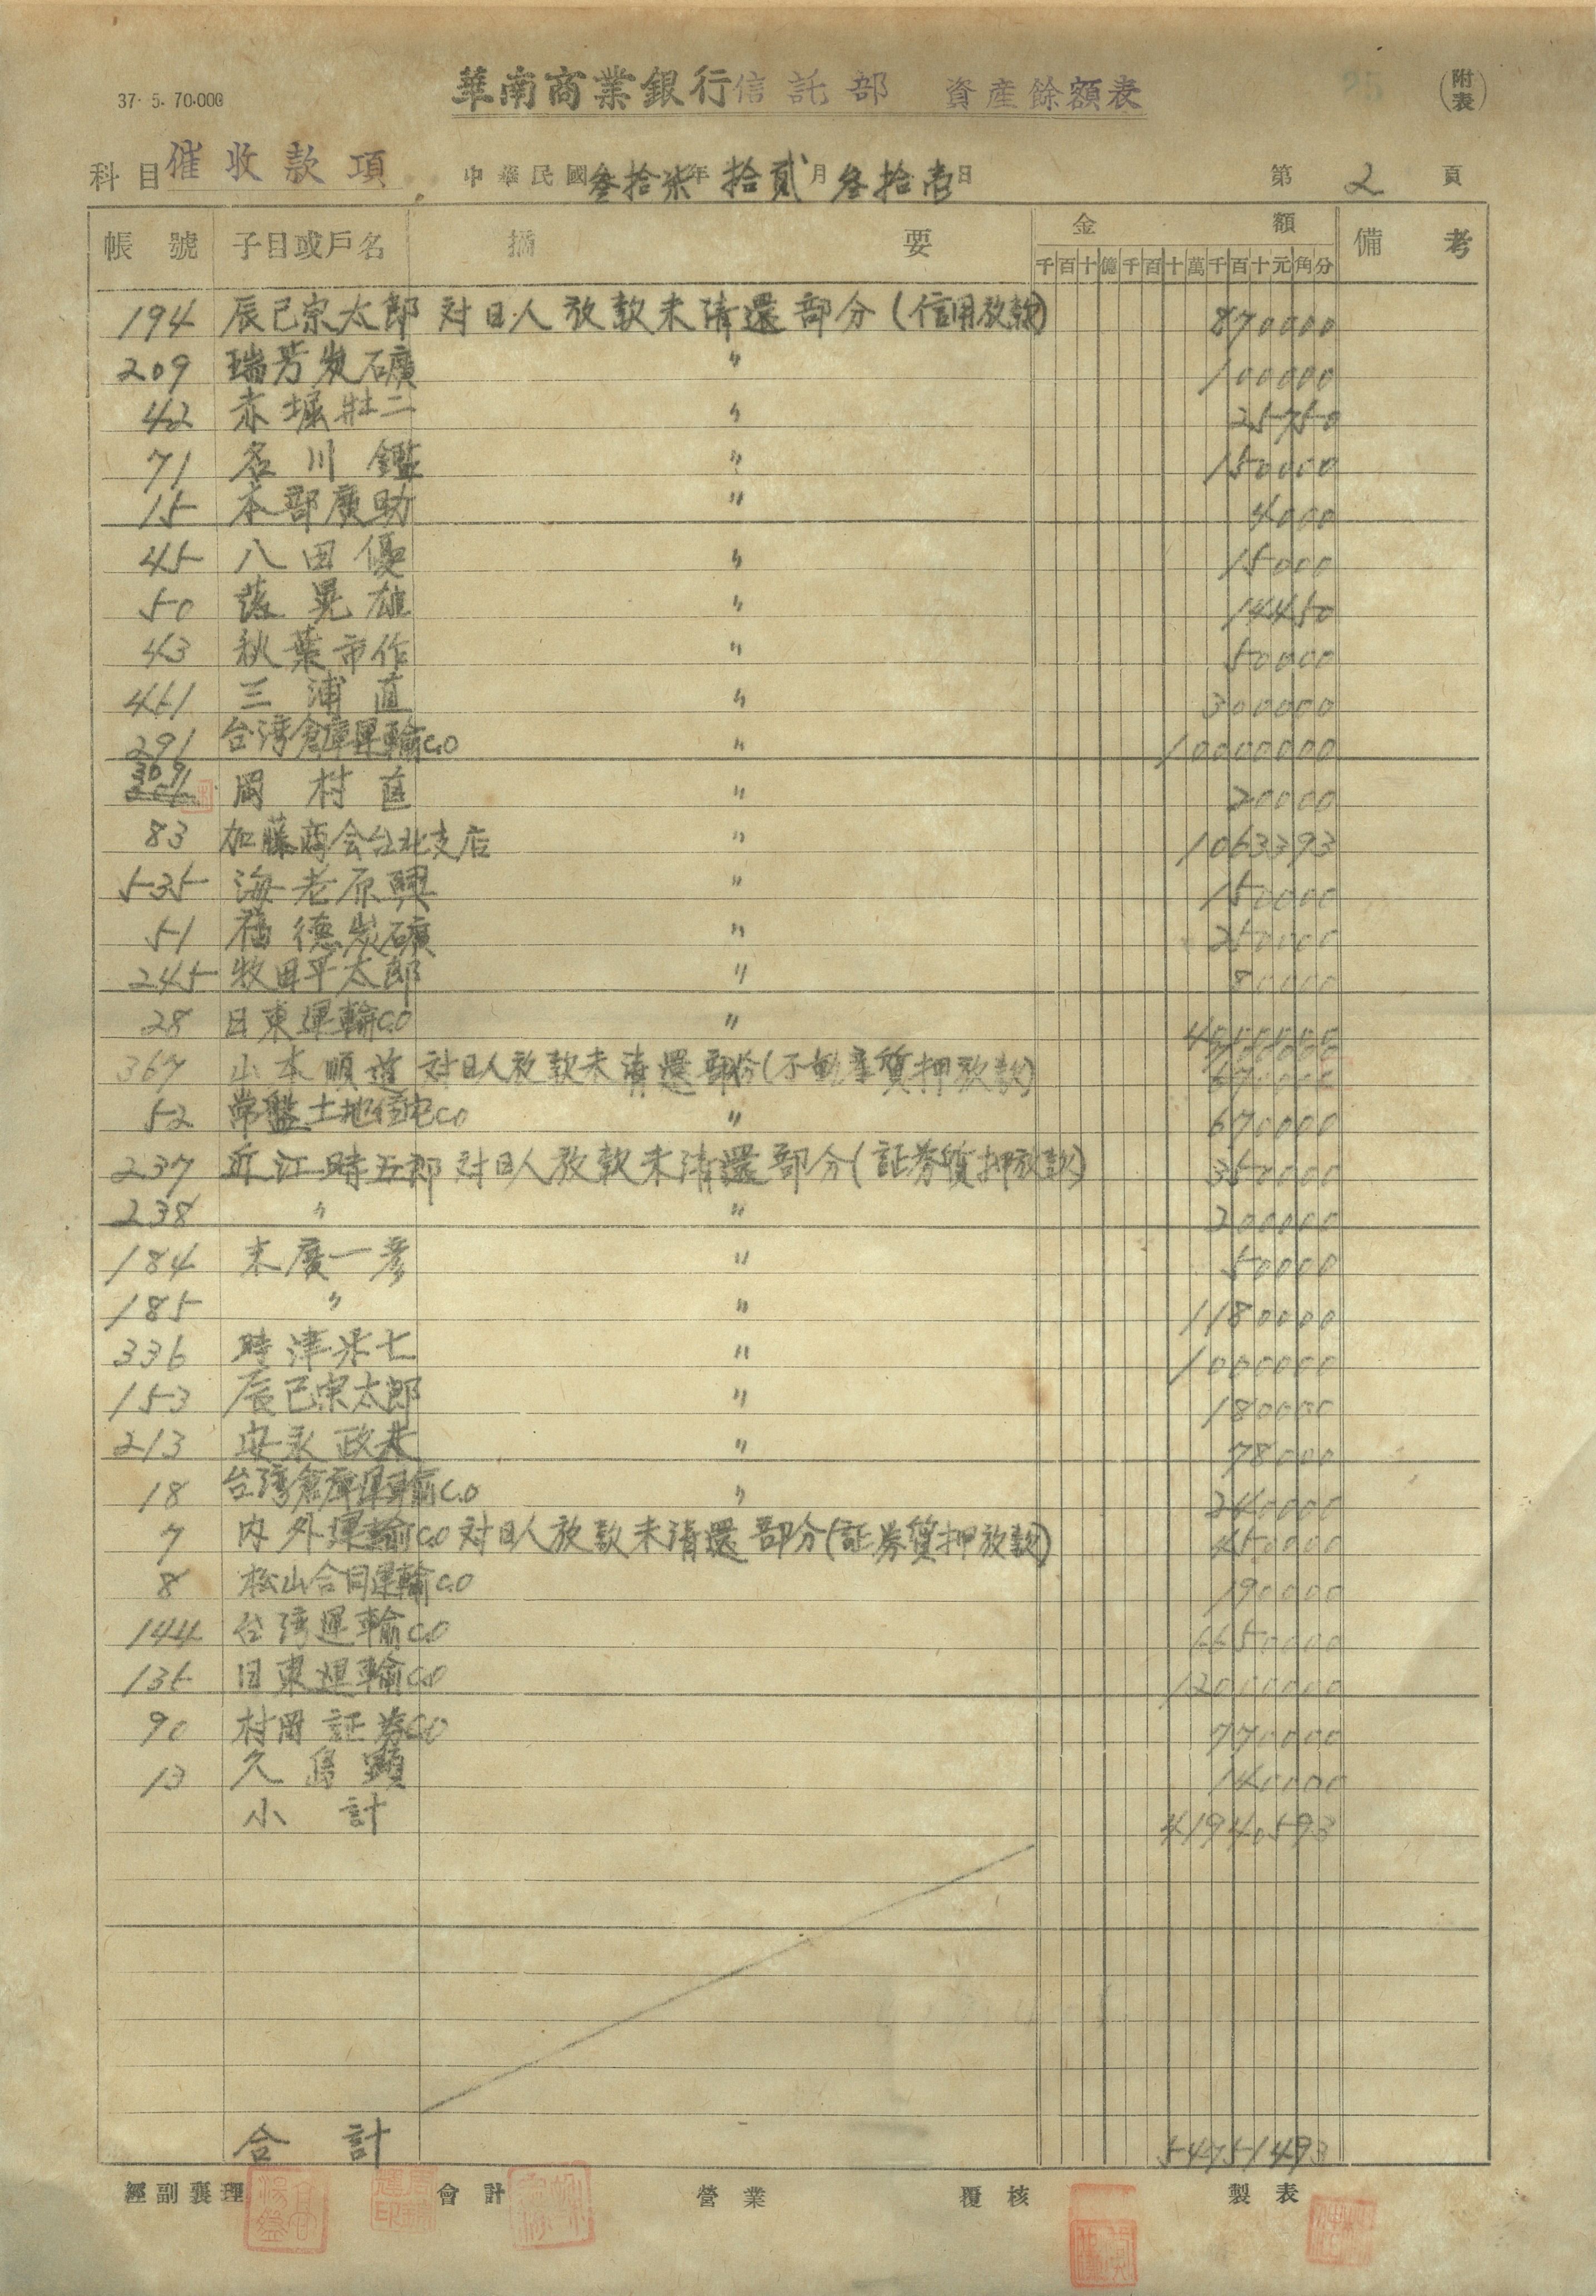 37. 5. 70.000
華南商業銀行信託部 資產餘額表
(附表)
科目 催收款項 中華民國叁拾柒年拾貳月叁拾壹日 第2頁
帳號 子目或戶名 摘要 金額 備考
千百十億千百十萬千百十元角分
194 辰己宗太郎 対日人放款未清還部分(信用放款) 870000
209 瑞芳炭礦 〃 100000
42 赤堀壯二 〃 25750
71 名川鑑 〃 150000
15 本部廣助 〃 4000
45 八田優 〃 15000
50 落晃雄 〃 14450
43 秋葉市作 〃 50000
461 三浦直 〃 300000
291 台湾倉庫運輸C.O 〃 10000000
岡村直 〃 20000
83 加藤商会台北支店 〃 1063393
535 海老原興 〃 150000
51 福德炭礦 〃 250000
245 牧田平太郎 〃 80000
28 日東運輸C.O 〃
367 山本順道 対日人放款未清還部份(不動産質押放款)
52 常盤土地住宅C.O 〃 670000
237 近江時五郎 対日人放款未清還部分(証券質押放款) 350000
238 〃 〃 200000
184 末廣一彥 〃 50000
185 〃 〃 1180000
336 時津米七 〃 1000000
153 辰己宗太郎 〃 180000
213 安永政夫 〃 78000
18 台湾倉庫運輸C.O 〃 240000
7 内外運輸C.O 対日人放款未清還部分(証券質押放款) 450000
8 松山合同運輸C.O 190000
144 台湾運輸C.O
136 日東運輸C.O 12000000
90 村岡証券C.O 770000
13 久島顕 140000
小計 41940593
合計 54751493
經副襄理 會計 營業 覆核 製表